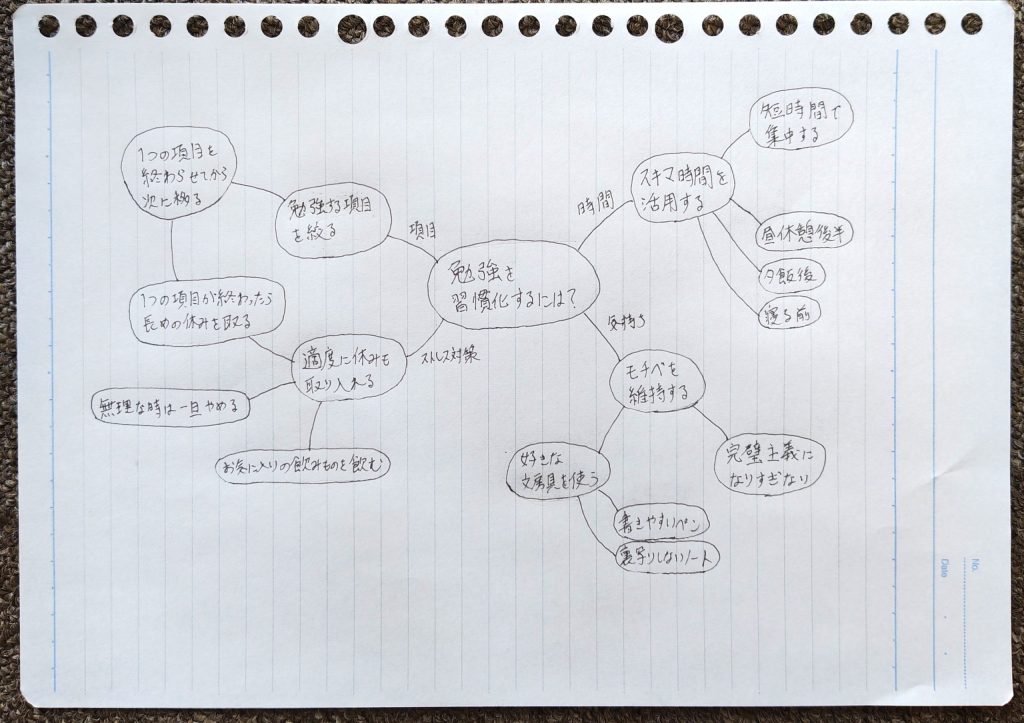 勉強を
習慣化するには?
項目
勉強する項目
を絞る
1つの項目を
終わらせてから
次に移る
1つの項目が終わったら
長めの休みを取る
ストレス対策
適度に休みも
取り入れる
無理な時は一旦やめる
お気に入りの飲みものを飲む
時間
スキマ時間を
活用する
短時間で
集中する
昼休憩後半
夕飯後
寝る前
気持ち
モチベを
維持する
好きな
文房具を使う
書きやすいペン
裏写りしないノート
完璧主義に
なりすぎない
No.
Date